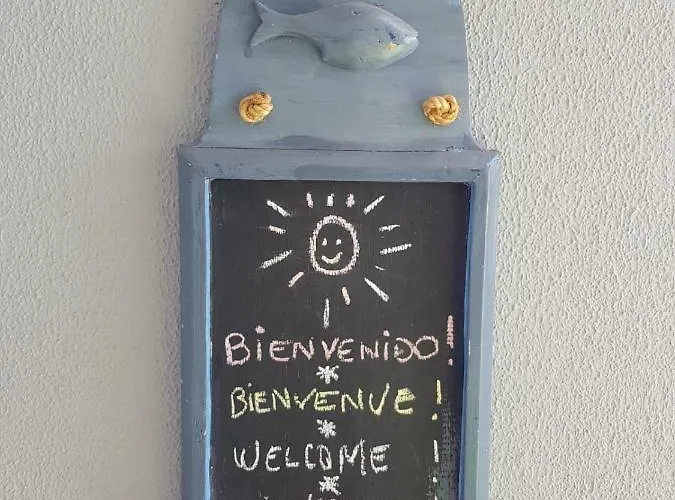 BIENVENIDO!
*
BIENVENUE !
*
WELCOME !
*